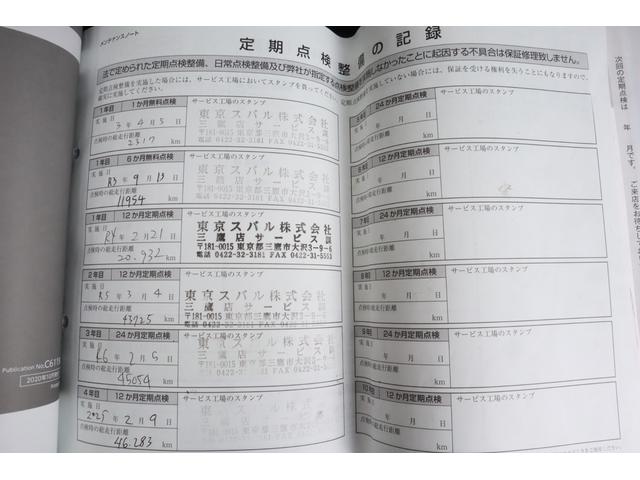 メンテナンスノート
定期点検整備の記録
法で定められた定期点検整備、日常点検整備及び弊社が指定する点検整備を実施しなかったことに起因する不具合は保証修理致しません。
定期点検整備を実施した場合には、サービス工場においてスタンプを貰ってください。
実施していない場合には、保証を受ける権利を失うことにもなりますので、
確実に実施してください。
1年目 1か月無料点検 サービス工場のスタンプ
実施日 3年4月5日
点検時の総走行距離
2317 km
東京スバル株式会社
三鷹店サービス課
〒181-0015 東京都三鷹市大沢3-9-6
電話 0422-32-3181 FAX 0422-31-5553
1年目 6か月無料点検 サービス工場のスタンプ
実施日 R3年9月13日
点検時の総走行距離
11954 km
東京スバル株式会社
三鷹店サービス課
〒181-0015 東京都三鷹市大沢3-9-6
電話 0422-32-3181 FAX 0422-31-5553
1年目 12か月定期点検 サービス工場のスタンプ
実施日 R4年2月21日
点検時の総走行距離
20,932 km
東京スバル株式会社
三鷹店サービス課
〒181-0015 東京都三鷹市大沢3-9-6
電話 0422-32-3181 FAX 0422-31-5553
2年目 12か月定期点検 サービス工場のスタンプ
実施日 R5年3月4日
点検時の総走行距離
43725 km
東京スバル株式会社
三鷹店サービス課
〒181-0015 東京都三鷹市大沢3-9-6
3年目 24か月定期点検 サービス工場のスタンプ
実施日 R6年2月5日
点検時の総走行距離
45054 km
4年目 12か月定期点検 サービス工場のスタンプ
実施日 2025年2月9日
点検時の総走行距離
46,283 km
24か月定期点検 サービス工場のスタンプ
実施日 年 月 日
点検時の総走行距離
km
12か月定期点検 サービス工場のスタンプ
実施日 年 月 日
点検時の総走行距離
km
7年目 24か月定期点検 サービス工場のスタンプ
実施日 年 月 日
点検時の総走行距離
km
8年目 12か月定期点検 サービス工場のスタンプ
実施日 年 月 日
点検時の総走行距離
km
9年目 24か月定期点検 サービス工場のスタンプ
実施日 年 月 日
点検時の総走行距離
km
10年目 12か月定期点検 サービス工場のスタンプ
実施日 年 月 日
点検時の総走行距離
km
次回の定期点検は
年 月です。ご来店をお待ち
Publication No.
2020年10月